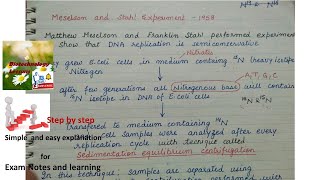 N14 & N15
Meselson and Stahl Experiment - 1958
Matthew Meselson and Franklin Stahl performed experiment
show that DNA replication is semiconservative
Nitrates
grew E.coli cells in medium containing 15N (heavy isotope
Nitrogen
A,T,G,C
after few generations all Nitrogenous base will contain
15N isotope in DNA of E.coli cells
14N & 15N
transferred to medium containing 14N
cell samples were analyzed after every
replication cycle with technique called
Sedimentation equilibrium centrifugation
In this technique; samples are separated using
performed with
Biotechnology
Step by step
Simple and easy explanation
for
Exam Notes and learning